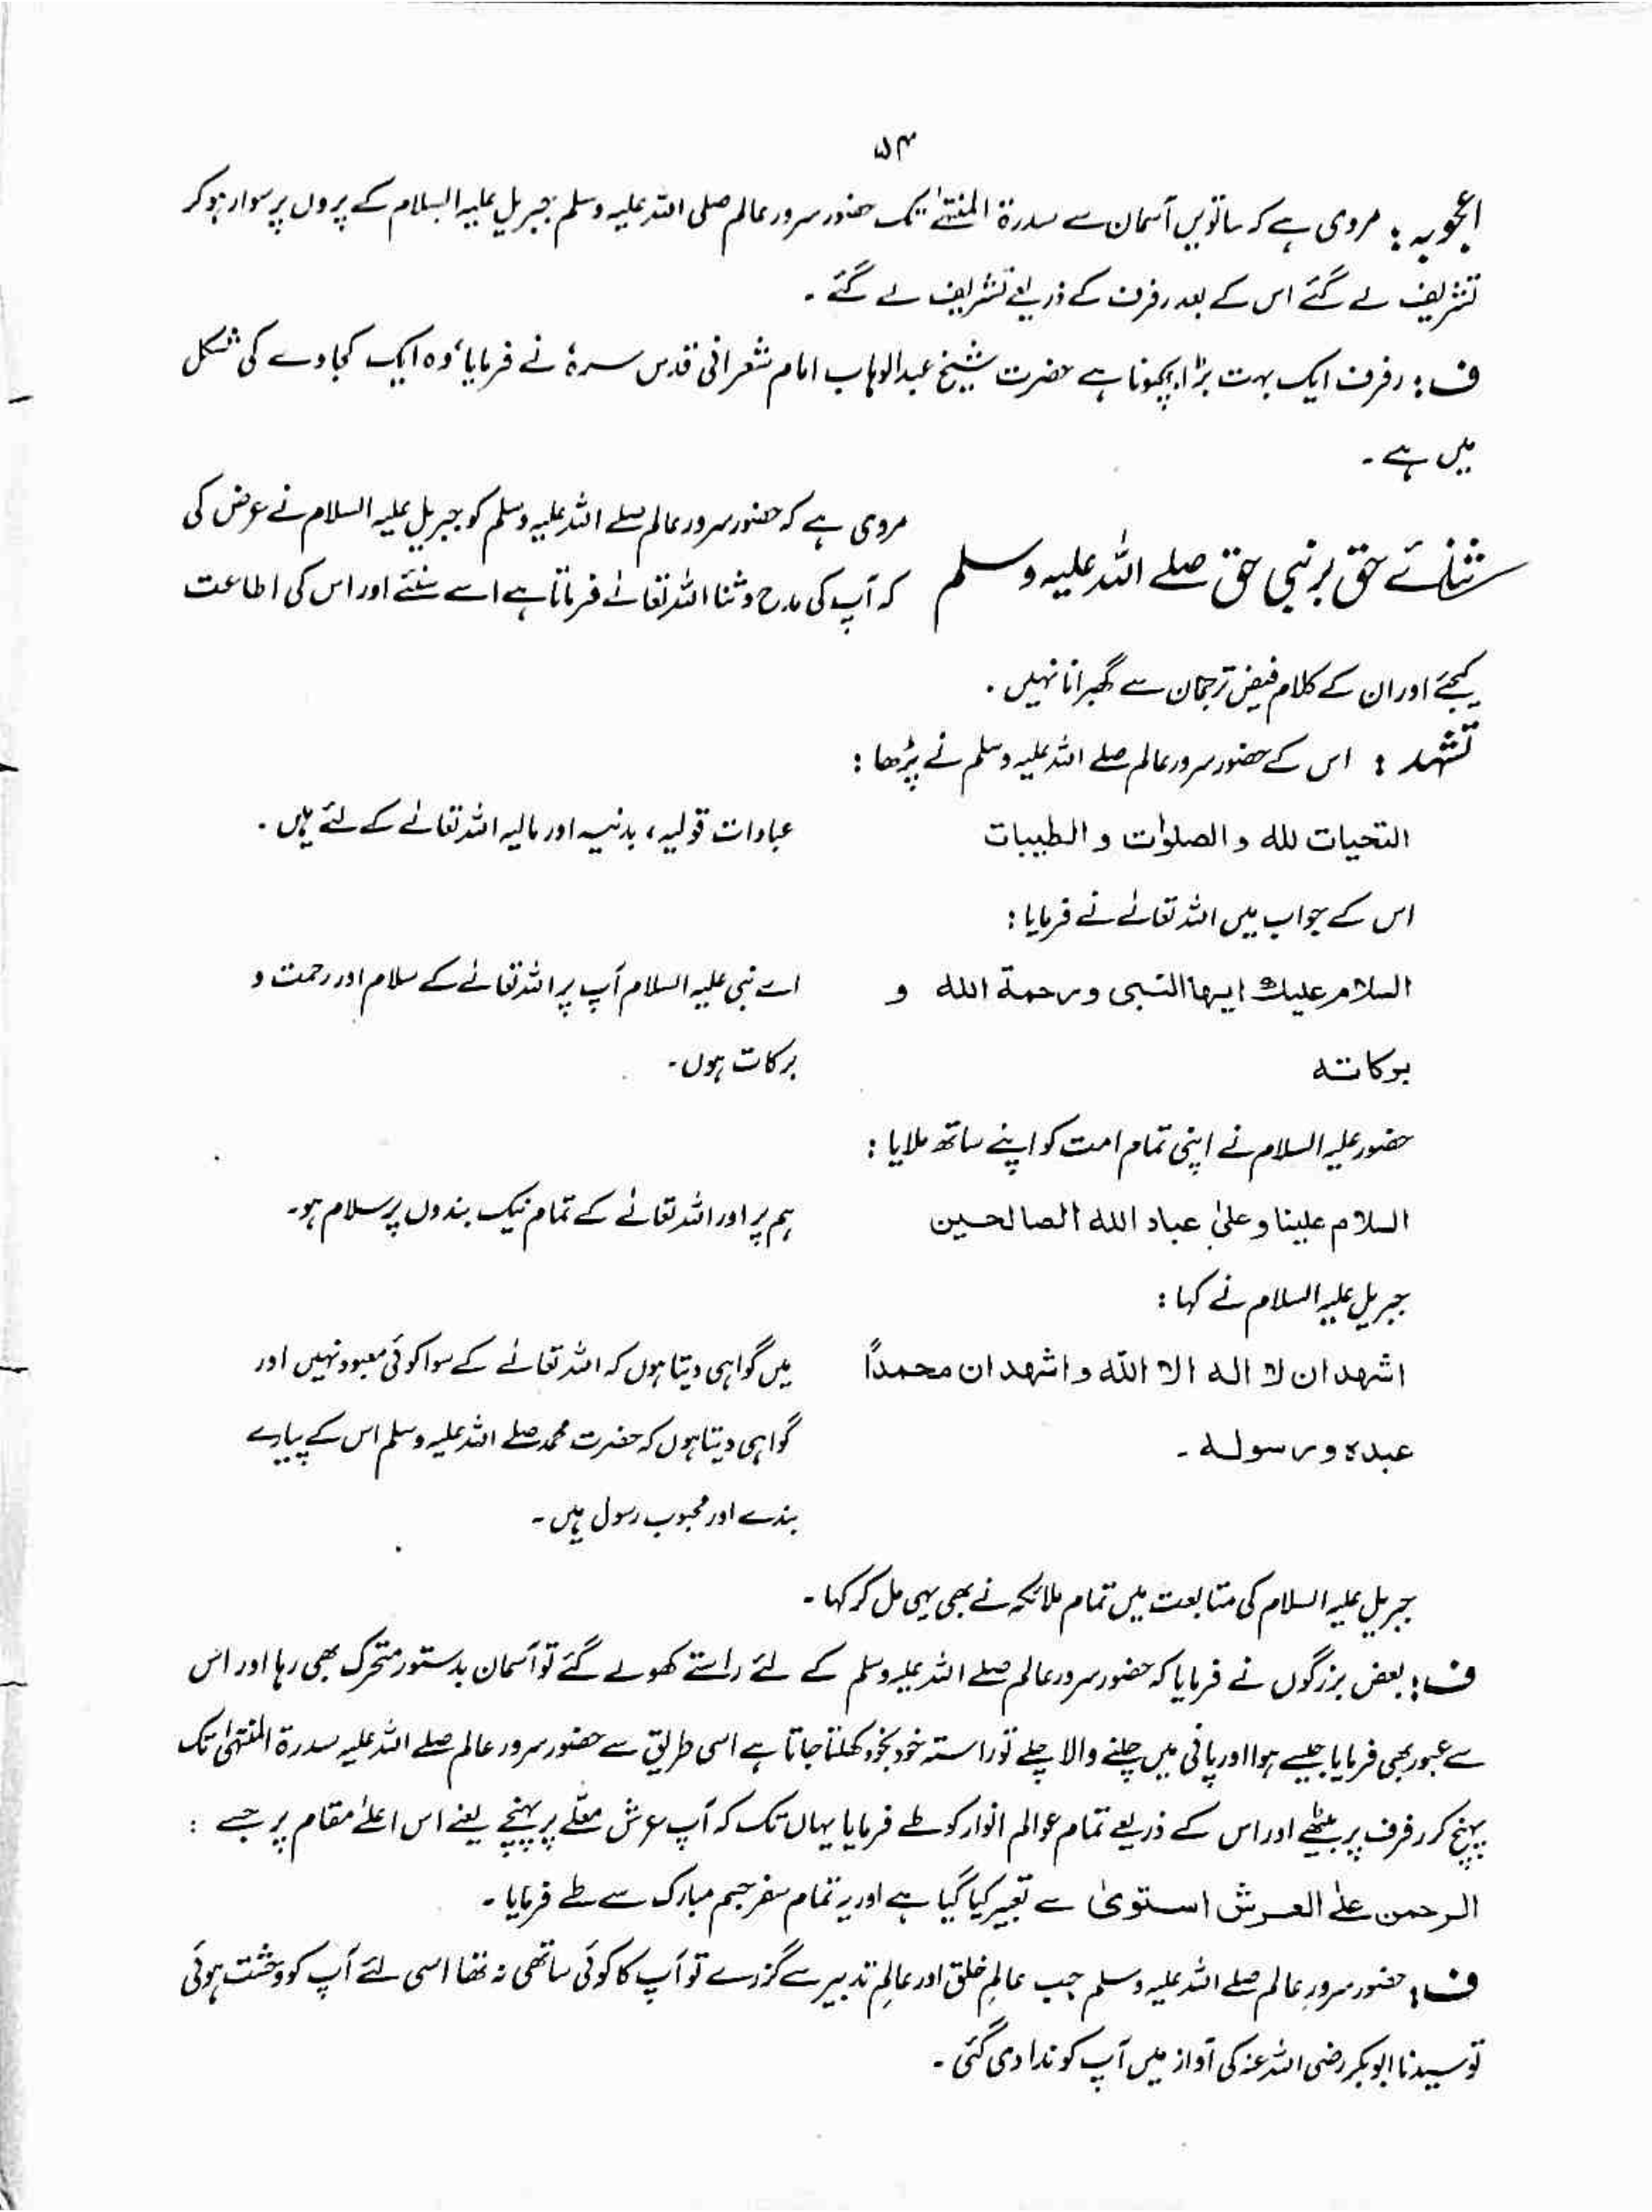 ۵۴
اعجوبہ : مروی ہے کہ ساتویں آسمان سے سدرۃ المنتہٰے تک حضور سرور عالم صلی اللہ علیہ وسلم جبریل علیہ السلام کے پروں پر سوار ہو کر
تشریف لے گئے اس کے بعد رفرف کے ذریعے تشریف لے گئے ۔
ف : رفرف ایک بہت بڑا بچھونا ہے حضرت شیخ عبدالوہاب امام شعرانی قدس سرہٗ نے فرمایا، وہ ایک کجاوے کی شکل
میں ہے ۔
ثنائے حق بر نبی حق صلے اللہ علیہ وسلم
مروی ہے کہ حضور سرور عالم صلے اللہ علیہ وسلم کو جبریل علیہ السلام نے عرض کی
کہ آپ کی مدح و ثنا اللہ تعالٰے فرماتا ہے اسے سنئے اور اس کی اطاعت
کیجئے اور ان کے کلام فیض ترجمان سے گھبرانا نہیں ۔
تشہد : اس کے حضور سرور عالم صلے اللہ علیہ وسلم نے پڑھا :
التحیات للہ و الصلوٰت و الطیبات
عبادات قولیہ ، بدنیہ اور مالیہ اللہ تعالٰے کے لئے ہیں ۔
اس کے جواب میں اللہ تعالٰے نے فرمایا :
السلام علیك ایہا النبی ورحمۃ اللہ و
برکاتہ
اے نبی علیہ السلام آپ پر اللہ تعالٰے کے سلام اور رحمت و
برکات ہوں ۔
حضور علیہ السلام نے اپنی تمام امت کو اپنے ساتھ ملایا :
السلام علینا و علیٰ عباد اللہ الصالحین
ہم پر اور اللہ تعالٰے کے تمام نیک بندوں پر سلام ہو ۔
جبریل علیہ السلام نے کہا :
اشہد ان لا الہ الا اللہ و اشہد ان محمدًا
عبدہ و رسولہ ۔
میں گواہی دیتا ہوں کہ اللہ تعالٰے کے سوا کوئی معبود نہیں اور
گواہی دیتا ہوں کہ حضرت محمد صلے اللہ علیہ وسلم اس کے پیارے
بندے اور محبوب رسول ہیں ۔
جبریل علیہ السلام کی متابعت میں تمام ملائکہ نے بھی یہی مل کر کہا ۔
ف : بعض بزرگوں نے فرمایا کہ حضور سرور عالم صلے اللہ علیہ وسلم کے لئے راستے کھولے گئے تو آسمان بدستور متحرک بھی رہا اور اس
سے عبور بھی فرمایا جیسے ہوا اور پانی میں چلنے والا چلے تو راستہ خود بخود کھلتا جاتا ہے اسی طریق سے حضور سرور عالم صلے اللہ علیہ سدرۃ المنتہیٰ تک
پہنچ کر رفرف پر بیٹھے اور اس کے ذریعے تمام عوالم انوار کو طے فرمایا یہاں تک کہ آپ عرش معلّے پر پہنچے یعنے اس اعلےٰ مقام پر جسے :
الرحمن علے العرش استویٰ سے تعبیر کیا گیا ہے اور یہ تمام سفر جسم مبارک سے طے فرمایا ۔
ف : حضور سرورِ عالم صلے اللہ علیہ وسلم جب عالمِ خلق اور عالمِ تدبیر سے گزرے تو آپ کا کوئی ساتھی نہ تھا اسی لئے آپ کو وحشت ہوئی
تو سیدنا ابوبکر رضی اللہ عنہ کی آواز میں آپ کو ندا دی گئی ۔